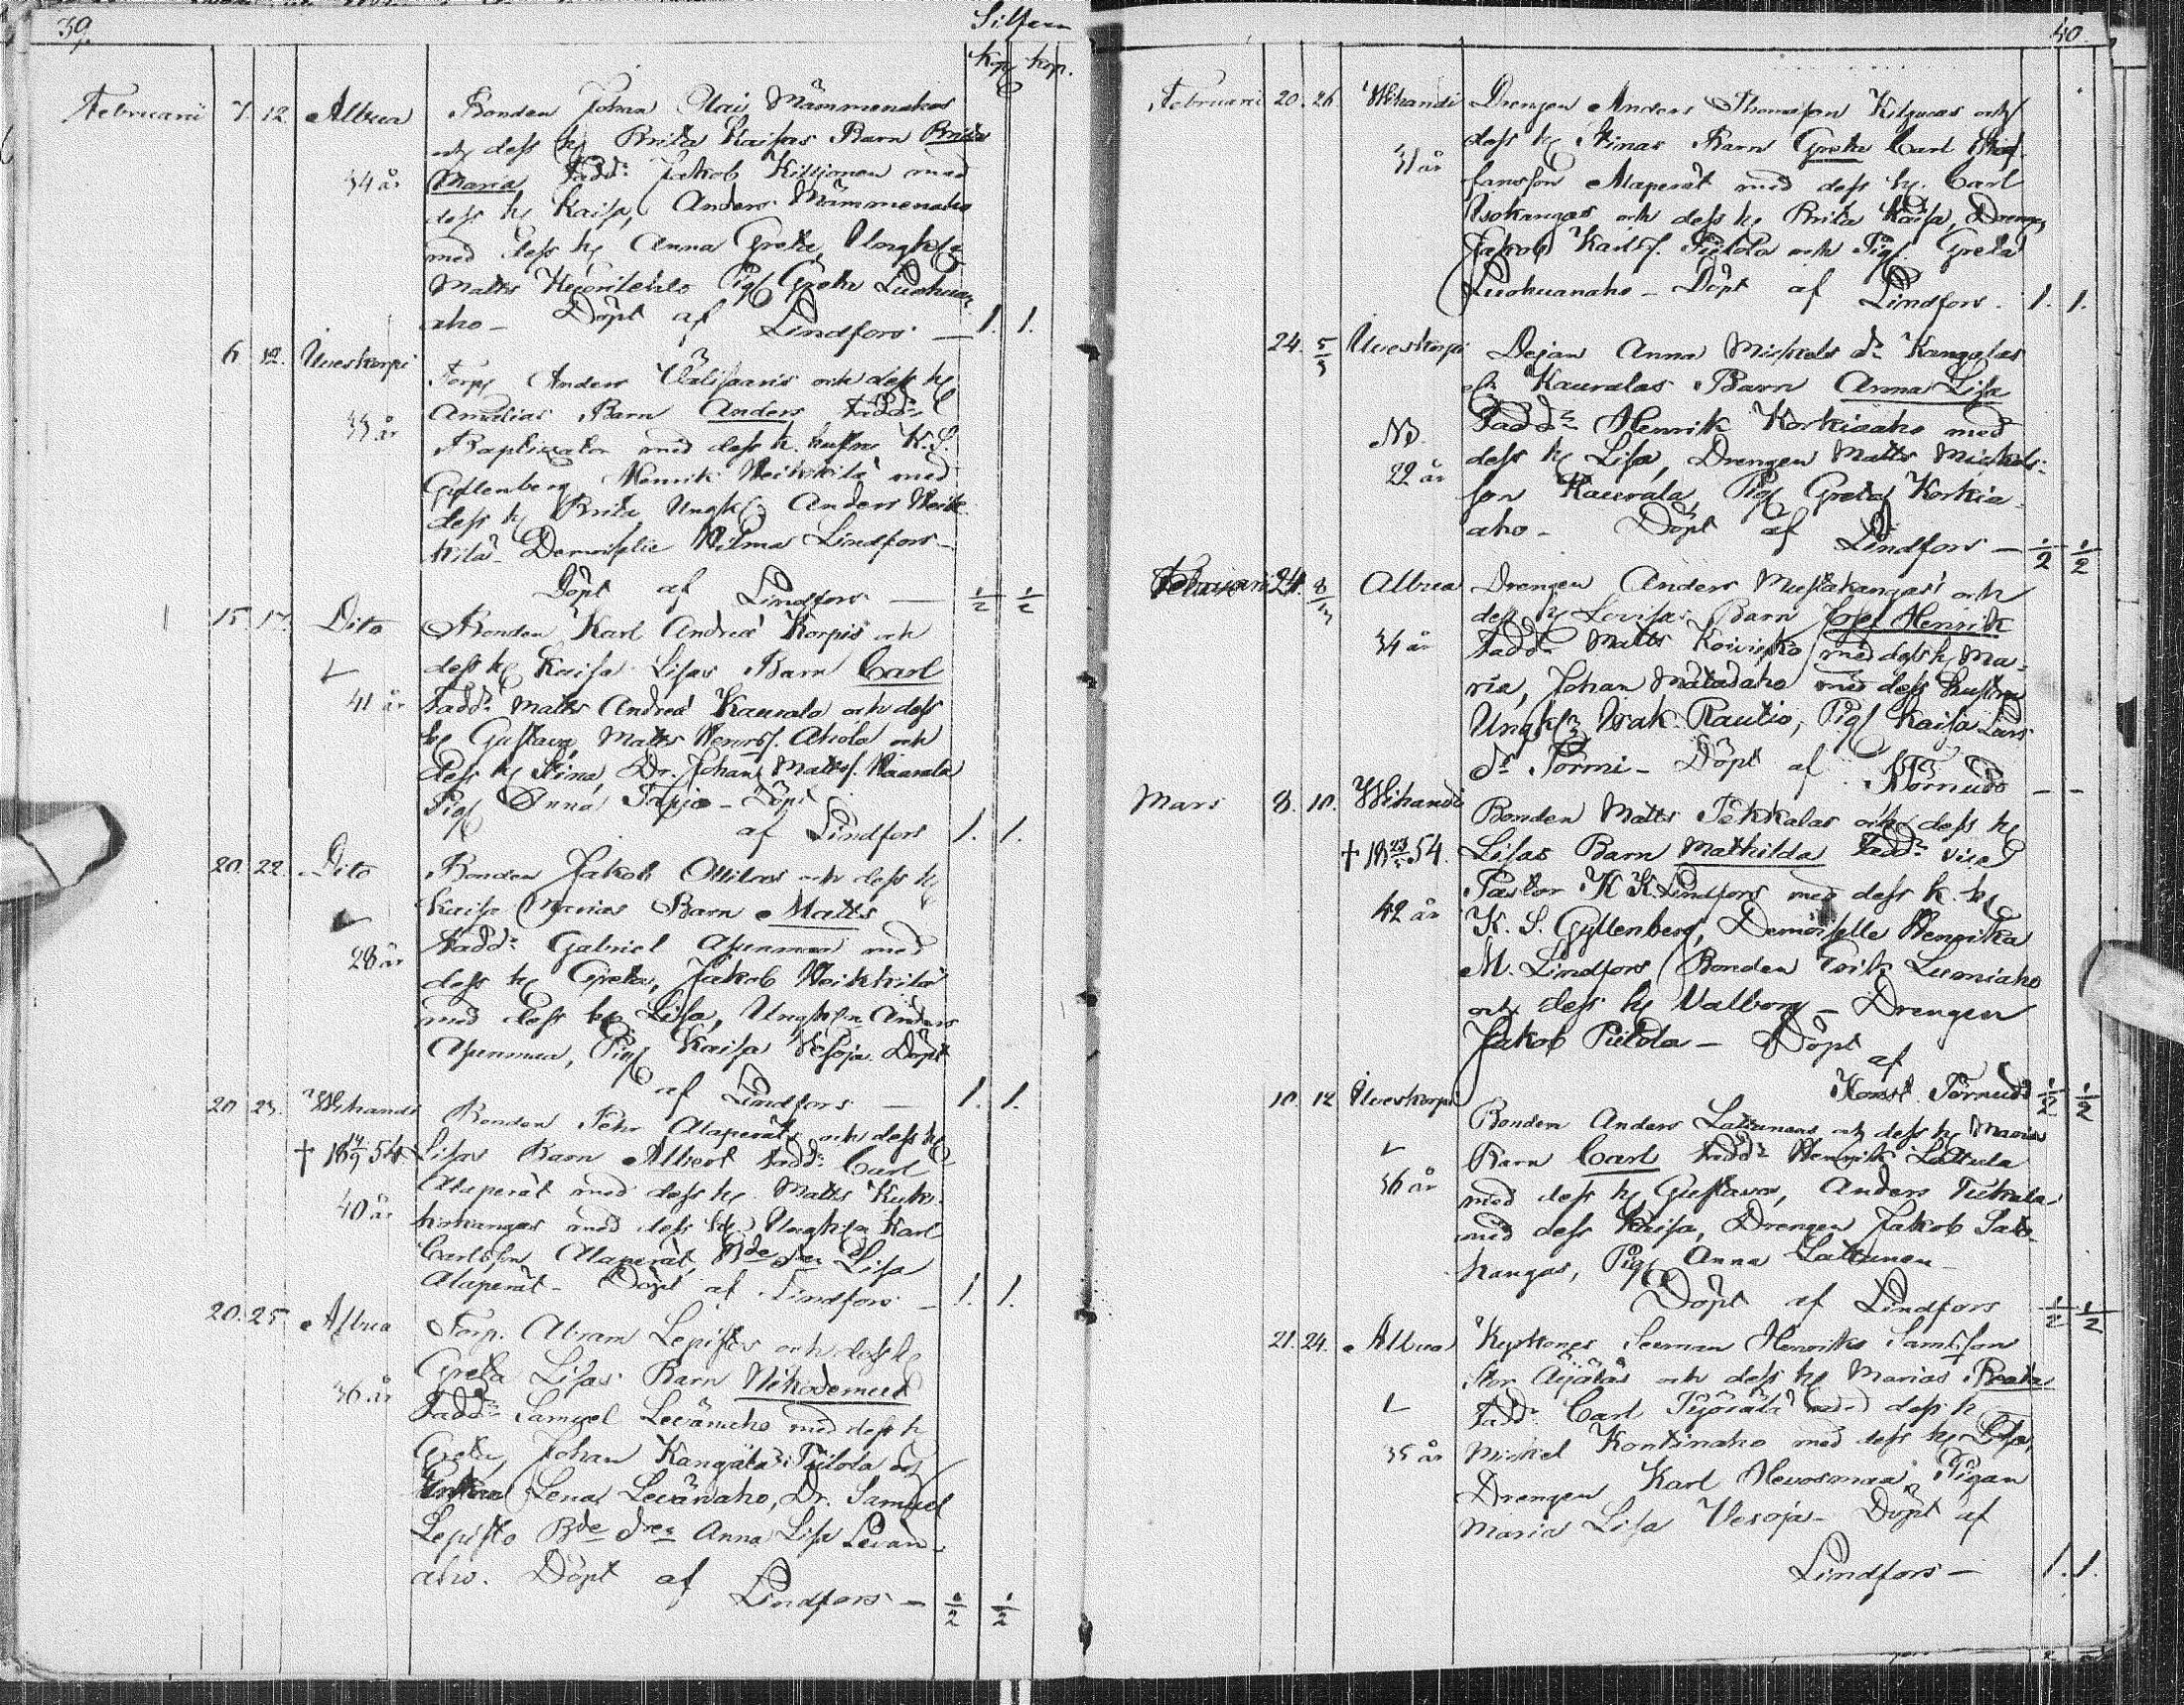 39.
Silfver
Kop. kop.
Februarii 7. 12 Albua Bonden Johan Mämmenahos
och dess h. Brita Kaisas Barn Brita
34 år Maria Fadd: Jakob med
dess h Kaisa, Anders Mämmenaho
med dess h Anna Greta, Ungk
Matts Pig Greta Luohuan
aho - Döpt af Lindfors — 1. 1.
6. 12. Uveskorpi Torp Anders Välisaaris och dess h
33 år Amalias Barn Anders Fadd:
Baptizator med dess k. hustru K. S.
Gyllenberg Henrik Heikkilä med
dess h Brita Ungk. Anders Heik
kilä Demoiselle Wilma Lindfors -
Döpt af Lindfors — 1/2 1/2
15 17. Dito Bonden Karl Andreæ Korpis och
dess h Kaisa Lisas Barn Carl
41 år Fadd: Matts Andreæ Kaurala och dess
h Gustava, Matts Henrss. Ahola och
dess h Stina, Dr. Johan Mattss. Kaurala
Pig Anna Tapio - Döpt
af Lindfors 1. 1.
20. 22. Dito Bonden Jakob Ollilas och dess h
Kaisa Marias Barn Matts
28 år Fadd: Gabriel Ajunmaa med
dess h Greta, Jakob Heikkilä
med dess h Lisa, Ungk Anders
Ajunmaa, Pig Kaisa Vesoja. Döpt
af Lindfors — 1. 1.
20 23. Wihandi Bonden Pehr Alaperäts och dess h
† 18 14/9 54 Lisas Barn Albert Fadd: Carl
40 år Alaperät med dess h. Matts Kuk
kokangas med dess h. Ungk Karl
Carlsson Alaperät, Bde dr Lisa
Alaperät - Döpt af Lindfors - 1. 1.
20. 25 Albua Torp. Abram Lepistös och dess h
Greta Lisas Barn Nikodemus
36 år Fadd: Samuel Levänaho med dess h
Greta, Johan Kangas Piilola och
Enkan Lena Levänaho, Dr. Samuel
Lepistö Bde dr Anna Lisa Levän-
aho. Döpt af
Lindfors — 1/2 1/2
40.
Februarii 20. 26 Wihandi Drengen Anders Thomasson Kilguas och
31 år dess h Stinas Barn Greta Carl
fansson Alaperät med dess h. Carl
Isokangas och dess h Brita Kaisa, Dreng
Jakob Karlss. Piilola och Pig. Greta
Luohuanaho - Döpt af Lindfors. 1. 1.
24. 5/3 Uveskorpi Dejan Anna Mickels dr Kangalas
Kauralas Barn Anna Lisa
NB. Fadd: Henrik Korkiaaho med
22 år dess h Lisa, Drengen Matts Mickels-
son Kaurala, Pig Greta Korkia-
aho - Döpt af Lindfors — 1/2 1/2
Februarii 24. 8/3 Albua Drengen Anders Mustakangas och
dess h Lovisas Barn Josef Henrik
34 år Fadd: Matts Koivisto med dess h Ma-
ria, Johan Mätäsaho med dess hustru
Ungk Isak Rautio, Pig Kaisa Lars
dr Pormi - Döpt af Törnudd — —
Mars 8. 10. Wihandi Bonden Matts Pekkalas och dess h
† 18 23/5 54. Lisas Barn Mathilda Fadd: vice
Pastor K K Lindfors med dess k. h
42 år K. S. Gyllenberg, Demoiselle Henrika
M. Lindfors Bonden Erik Lumiaho
och dess h Valborg - Drengen
Jakob Piilola - Döpt
af
Konst. Törnudd 1/2 1/2
10. 12 Uveskorpi Bonden Anders Lattunens och dess h Marias
Barn Carl Fadd: Henrik Lattula
36 år med dess h Gustava, Anders Tiikala
med dess Kaisa, Drengen Jakob Salo-
kangas, Pig Anna Lattunen -
Döpt af Lindfors 1/2 1/2
21. 24. Albua Kyrkones Seeman Henriks Samsson
Stor Äijäläs och dess h Marias Beata
Fadd: Carl Pyörälä med dess h
35 år Mickel Kontinaho med dess h Lisa,
Drengen Karl Hevosmaa, Pigan
Maria Lisa Vesoja - Döpt af
Lindfors — 1. 1.